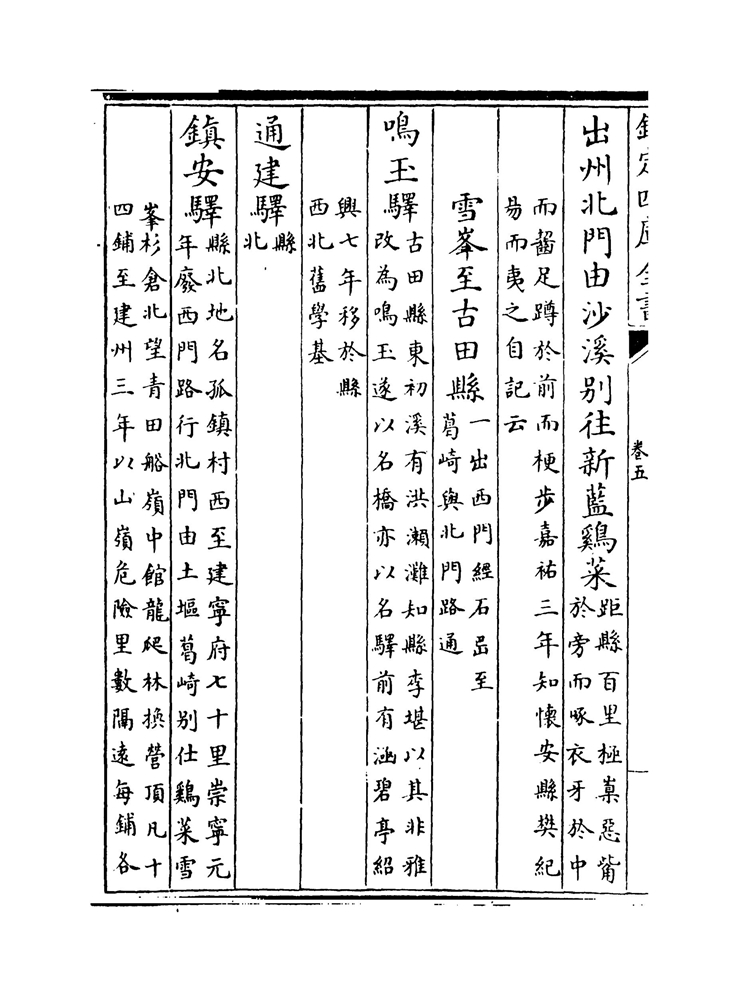 欽定四庫全書
卷五
出州北門由沙溪别往新藍鷄菜
距縣百里極巢惡觜
於旁而啄衣牙於中
而齧足蹲於前而梗步嘉祐三年知懷安縣樊紀
昜而夷之自記云
雪峯至古田縣
一出西門經石岊至
葛崎與北門路通
鳴玉驛
古田縣東初溪有洪瀨灘知縣李堪以其非雅
改為鳴玉遂以名橋亦以名驛前有涵碧亭紹
興七年移於縣
西北舊學基
通建驛
縣
北
鎮安驛
縣北地名孤鎮村西至建寧府七十里崇寧元
年廢西門路行北門由土塸葛崎别仕鷄菜雪
峯杉倉北望青田船嶺中館龍爬林換營頂凡十
四鋪至建州三年以山嶺危險里數隔遠每鋪各